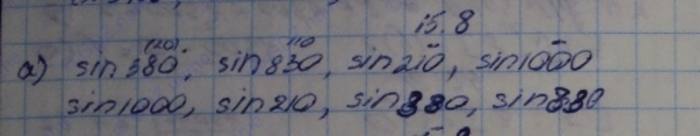 15.8
(20) 110
а) sin 380°, sin 830, sin 210, sin 1000
sin 1000, sin 210, sin 380, sin 830